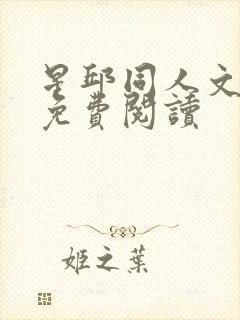 星邱同人文
免費閱讀
姬之葉